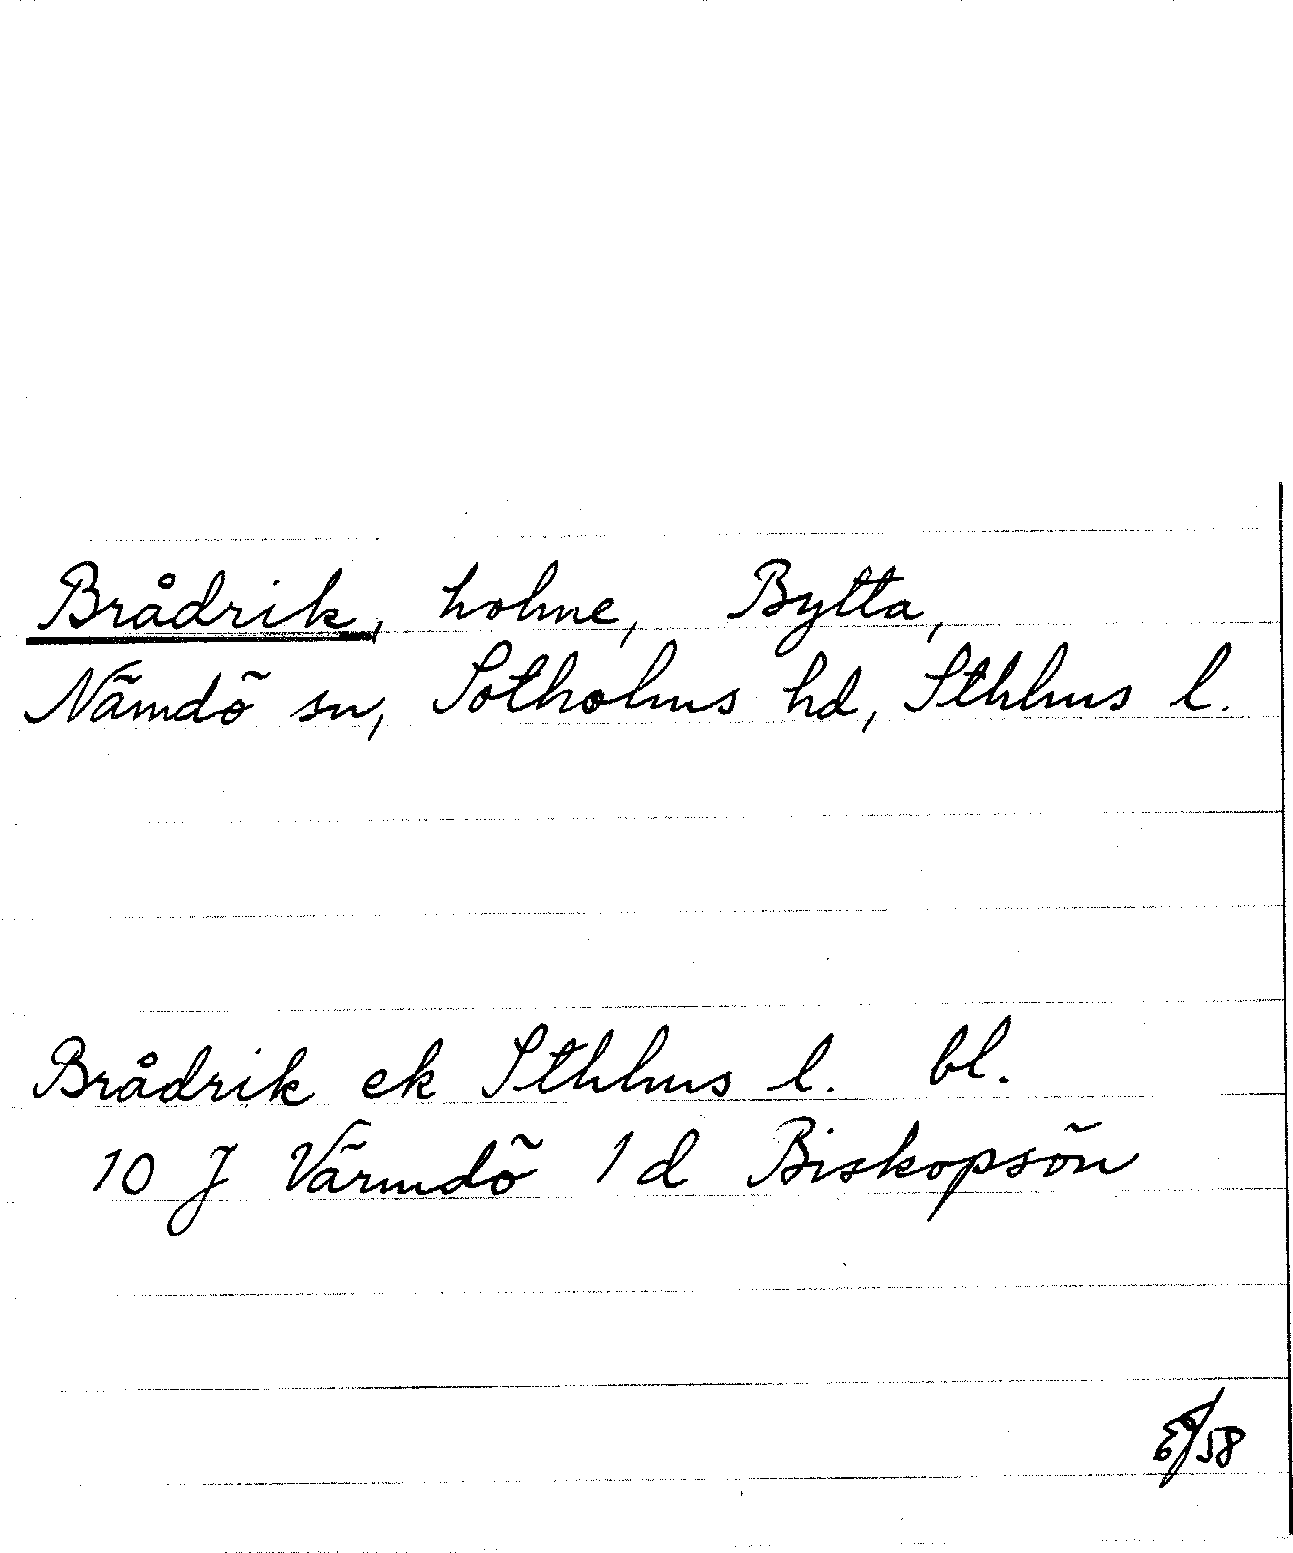 Brådrik, holme, Bytta,
Nämdö sn, Sotholms hd, Sthlms l.
Brådrik ek Sthlms l. bl.
10 J Värmdö 1 d Biskopsön
/58